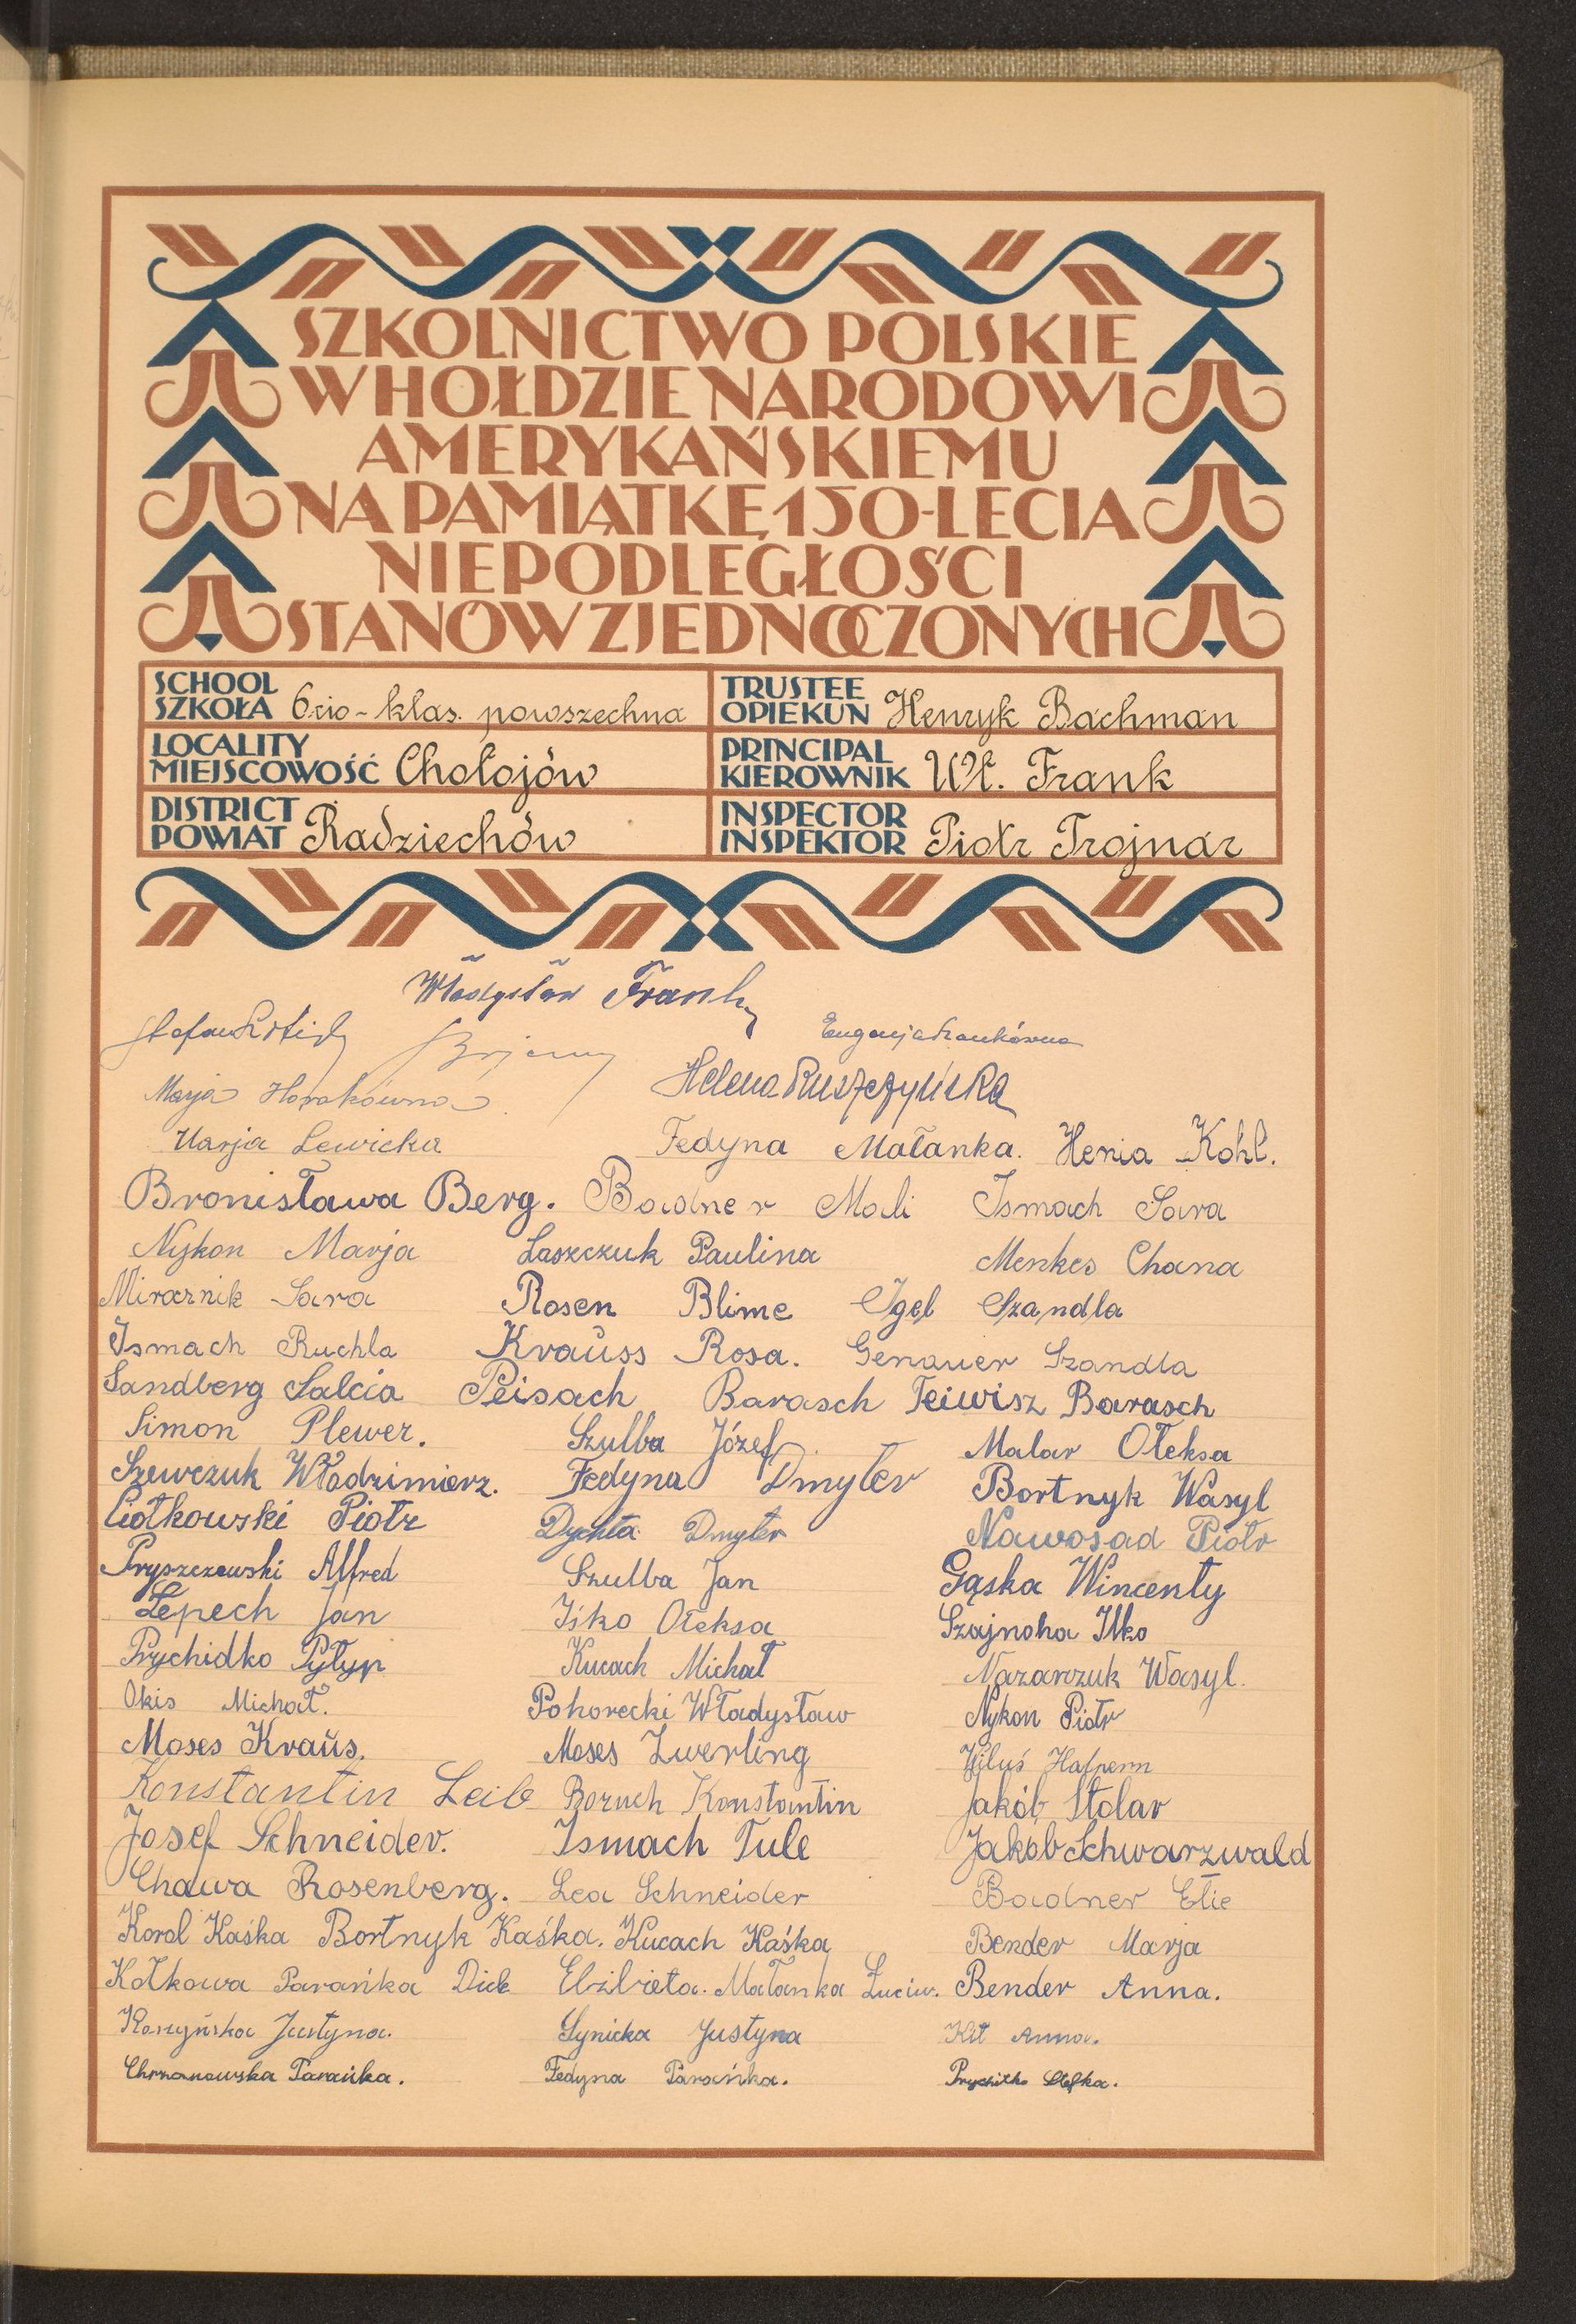 SZKOLNICTWO POLSKIE
W HOŁDZIE NARODOWI
AMERYKAŃSKIEMU
NA PAMIĄTKĘ 150-LECIA
NIEPODLEGŁOŚCI
STANÓW ZJEDNOCZONYCH
SCHOOL
SZKOŁA 6cio-klas. powszechna
TRUSTEE
OPIEKUN Henryk Bachman
LOCALITY
MIEJSCOWOŚĆ Chołojów
PRINCIPAL
KIEROWNIK Wł. Frank
DISTRICT
POWIAT Radziechów
INSPECTOR
INSPEKTOR Piotr Trojnar
Władysław Frank
Eugenja Frankówna
Marja Horakówna Helena Ruszczyńska
Marja Lewicka Fedyna Małanka. Henia Kohl.
Bronisława Berg. Badner Mali Ismach Sara
Nykon Marja Laszczuk Paulina Menkes Chana
Mirarnik Sara Rosen Blime Igel Szandla
Ismach Ruchla Krauss Rosa. Genauer Szandla
Sandberg Salcia Peisach Barasch Feiwisz Barasch
Simon Plewer. Szulba Józef. Malar Ołeksa
Szewczuk Włodzimierz. Fedyna Dmyter Bortnyk Wasyl
Ciołkowski Piotr Dychta Dmyter Nawosad Piotr
Pryszczewski Alfred Szulba Jan Gąska Wincenty
Lepech Jan Iśko Ołeksa Szajnoha Ilko
Prychidko Pyłyp Kucach Michał Nazarczuk Wasyl.
Okis Michał. Pohorecki Władysław Nykon Piotr
Moses Kraus. Moses Zwerling Wiluś Halpern
Konstantin Leib Boruch Konstantin Jakób Stolar
Josef Schneider. Ismach Tule Jakób Schwarzwald
Chawa Rosenberg. Lea Schneider Badner Etie
Korol Kaśka Bortnyk Kaśka. Kucach Kaśka Bender Marja
Kołkowa Parańka Dick Elżbieta. Małanka Łuciw. Bender Anna.
Justyna. Synicka Justyna Kit Anna.
Chrzanowska Parańka. Fedyna Parańka. Prychitko Stefka.